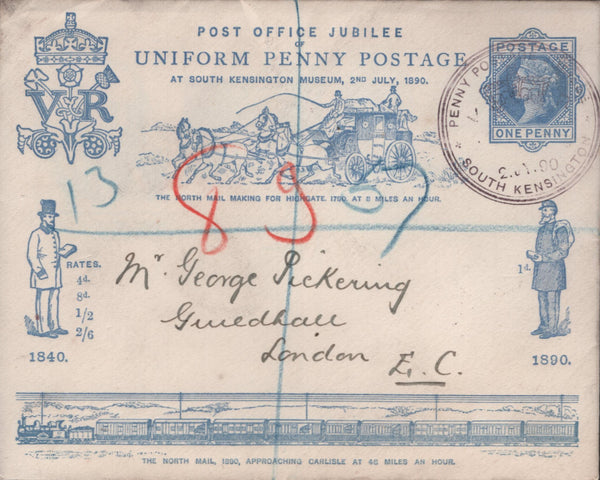 POST OFFICE JUBILEE
OF
UNIFORM PENNY POSTAGE
AT SOUTH KENSINGTON MUSEUM, 2ND JULY, 1890.
VR
POSTAGE
ONE PENNY
PENNY PO
2 JY 90
SOUTH KENSINGTON
THE NORTH MAIL MAKING FOR HIGHGATE. 1790. AT 8 MILES AN HOUR.
13
89
37
RATES.
4d.
8d.
1/2
2/6
1840.
1d.
1890.
Mr. George Pickering
Guildhall
London
E.C.
THE NORTH MAIL, 1890, APPROACHING CARLISLE AT 48 MILES AN HOUR.